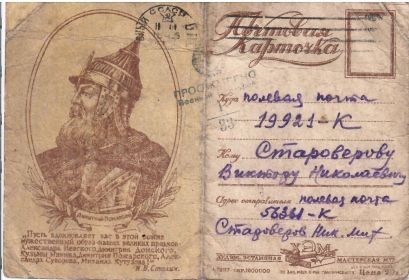 Дмитрий Пожарский
"Пусть вдохновляет вас в этой войне
мужественный образ наших великих предков—
Александра Невского, Димитрия Донского,
Кузьмы Минина, Димитрия Пожарского, Алек-
сандра Суворова, Михаила Кутузова!"
И. В. Сталин.
Почтовая
Карточка
ПРОСМОТРЕНО
Куда полевая почта
19921-К
Кому Староверову
Виктору Николаевичу
Адрес отправителя полевая почта
56361-К
Староверов Ник. Мих